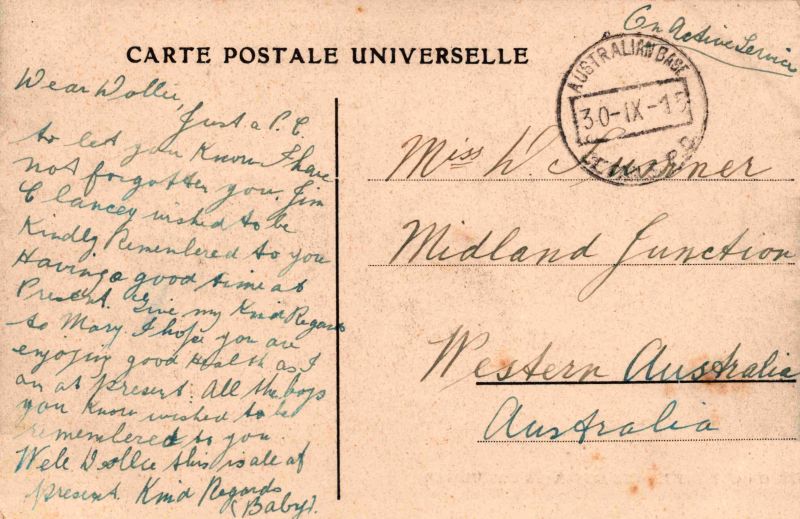 On Active Service
CARTE POSTALE UNIVERSELLE
AUSTRALIAN BASE
30-IX-15
Dear Dollie,
Just a P.C.
to let you Know I have
not forgotten you. Jim
Clancey wished to be
Kindly Remembered to you
Having a good time at
Present. Give my Kind Regards
to Mary. I hope you are
enjoying good Health as I
am at present. All the boys
you know wished to be
remembered to you.
Well Dollie this is all at
present. Kind Regards
(Baby).
Miss D.
Midland Junction
Western Australia
Australia